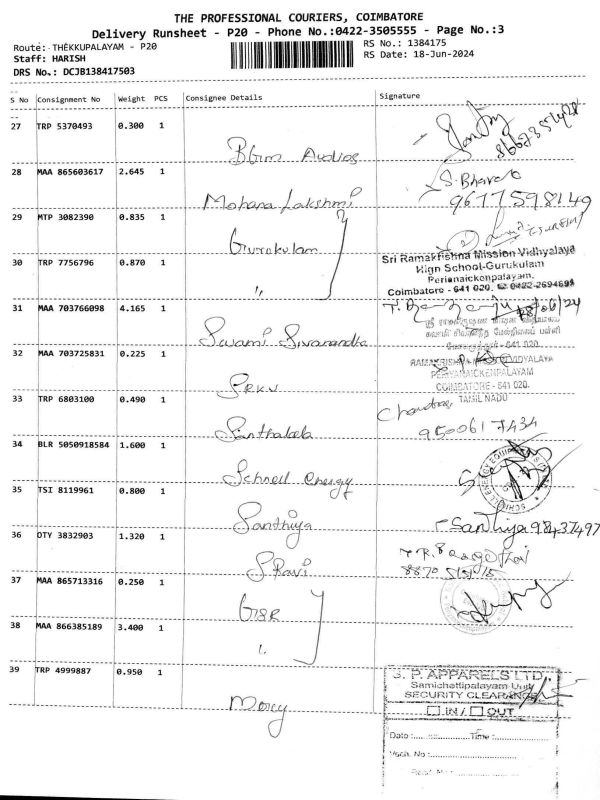 THE PROFESSIONAL COURIERS, COIMBATORE
Delivery Runsheet - P20 - Phone No.:0422-3505555 - Page No.:3
Route: THEKKUPALAYAM - P20
RS No.: 1384175
Staff: HARISH
RS Date: 18-Jun-2024
DRS No.: DCJB138417503
S No Consignment No Weight PCS Consignee Details Signature
27 TRP 5370493 0.300 1
Bbm Audios
28 MAA 865603617 2.645 1
S. Bharath
Mohana Lakshmi 9677598149
29 MTP 3082390 0.835 1
Gurukulam
30 TRP 7756796 0.870 1
Sri Ramakrishna Mission Vidhyalaya
High School-Gurukulam
Perianaickenpalayam,
Coimbatore - 641 020. ☎ 0422-2694691
"
31 MAA 703766098 4.165 1
18/06/24
Swami Sivanandha
- 641 020.
32 MAA 703725831 0.225 1
RAMAKRISHNA MISSION VIDYALAYA
PERIYANAICKENPALAYAM
COIMBATORE - 641 020.
TAMIL NADU
SRKV
33 TRP 6803100 0.490 1
Santhalela
9500617434
34 BLR 5050918584 1.600 1
Schnell energy
SCHNELL ENERGY EQUIPMENT
35 TSI 8119961 0.800 1
Santhiya
Santhiya 98437497
36 OTY 3832903 1.320 1
S Ravi
37 MAA 865713316 0.250 1
38 MAA 866385189 3.400 1
"
39 TRP 4999887 0.950 1
Mercy
S. P. APPARELS LTD.
Samichettipalayam Unit
SECURITY CLEARANCE
☐ IN / ☐ OUT
Date : Time :
Vech. No :